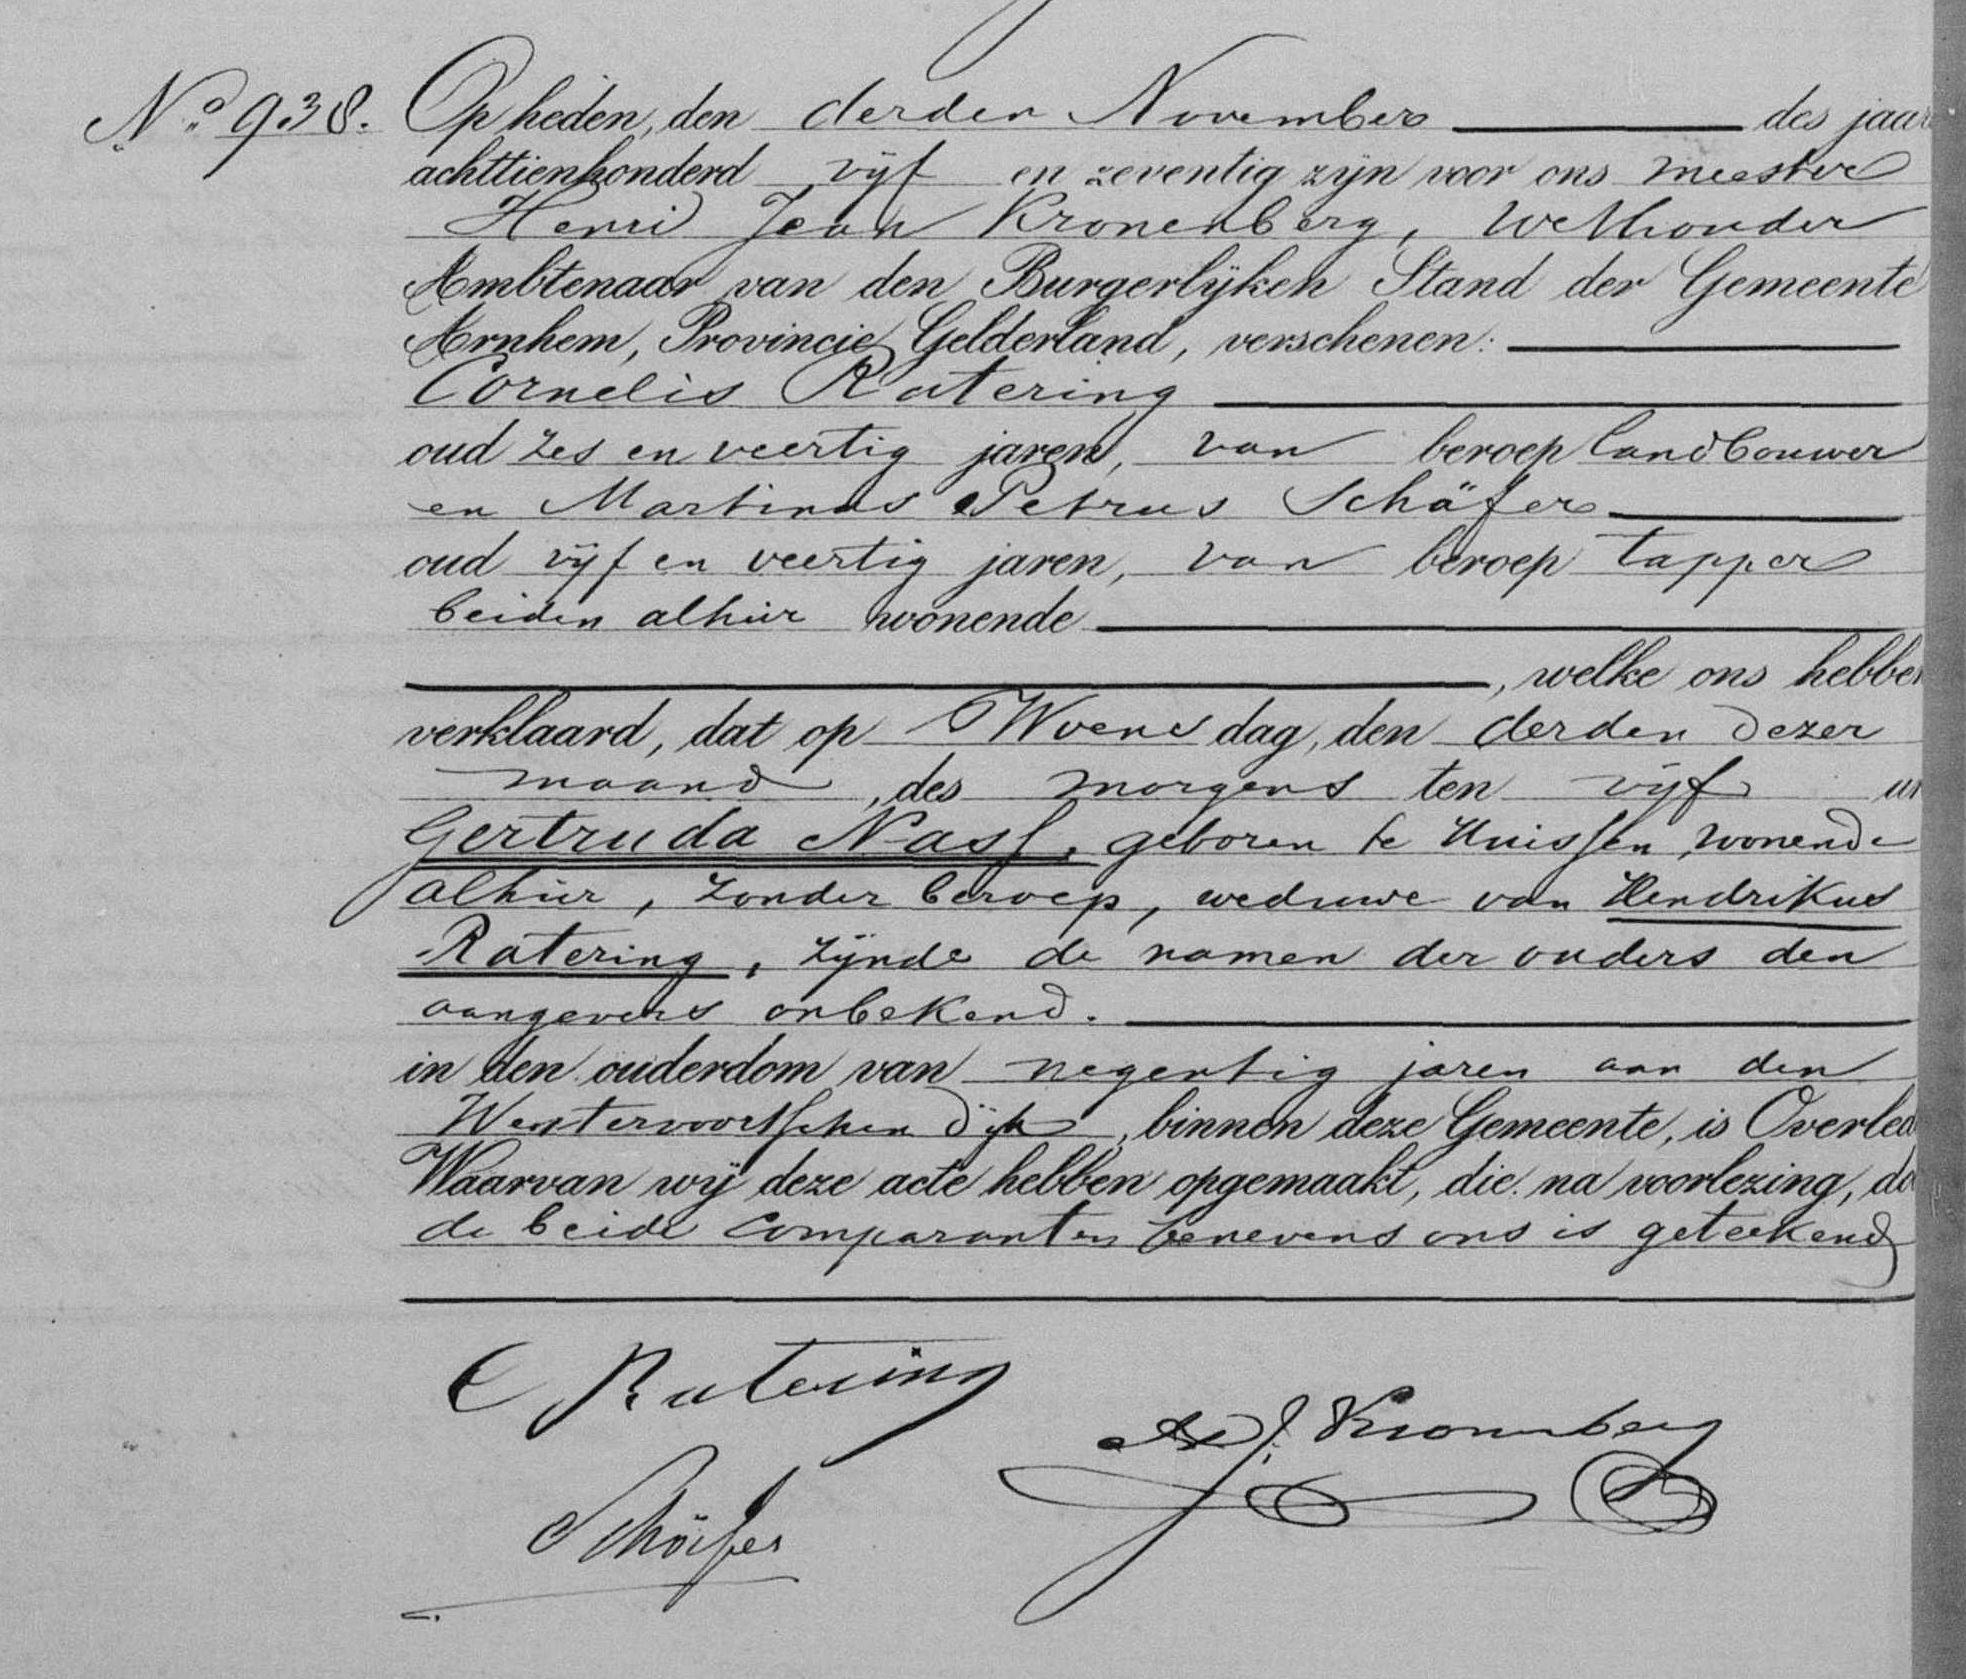 No 938. Op heden, den derden November des jaar
achttienhonderd vijf en zeventig zijn voor ons meester
Henri Jean Kronenberg, Wethouder
Ambtenaar van den Burgerlijken Stand der Gemeente
Arnhem, Provincie Gelderland, verschenen:
Cornelis Ratering
oud zes en veertig jaren, van beroep landbouwer
en Martinus Petrus Schäfer
oud vijf en veertig jaren, van beroep tapper
beiden alhier wonende
, welke ons hebben
verklaard, dat op Woensdag, den derden dezer
maand, des morgens ten vijf
Gertruda Nass, geboren te Huissen, wonende
alhier, zonder beroep, weduwe van Hendrikus
Ratering, zijnde de namen der ouders den
aangevers onbekend.
in den ouderdom van negentig jaren aan den
Westervoortschen dijk, binnen deze Gemeente, is Overled
Waarvan wij deze acte hebben opgemaakt, die na voorlezing, do
de beide comparanten benevens ons is geteekend
C Ratering
H J. Kronenberg
Schäfer